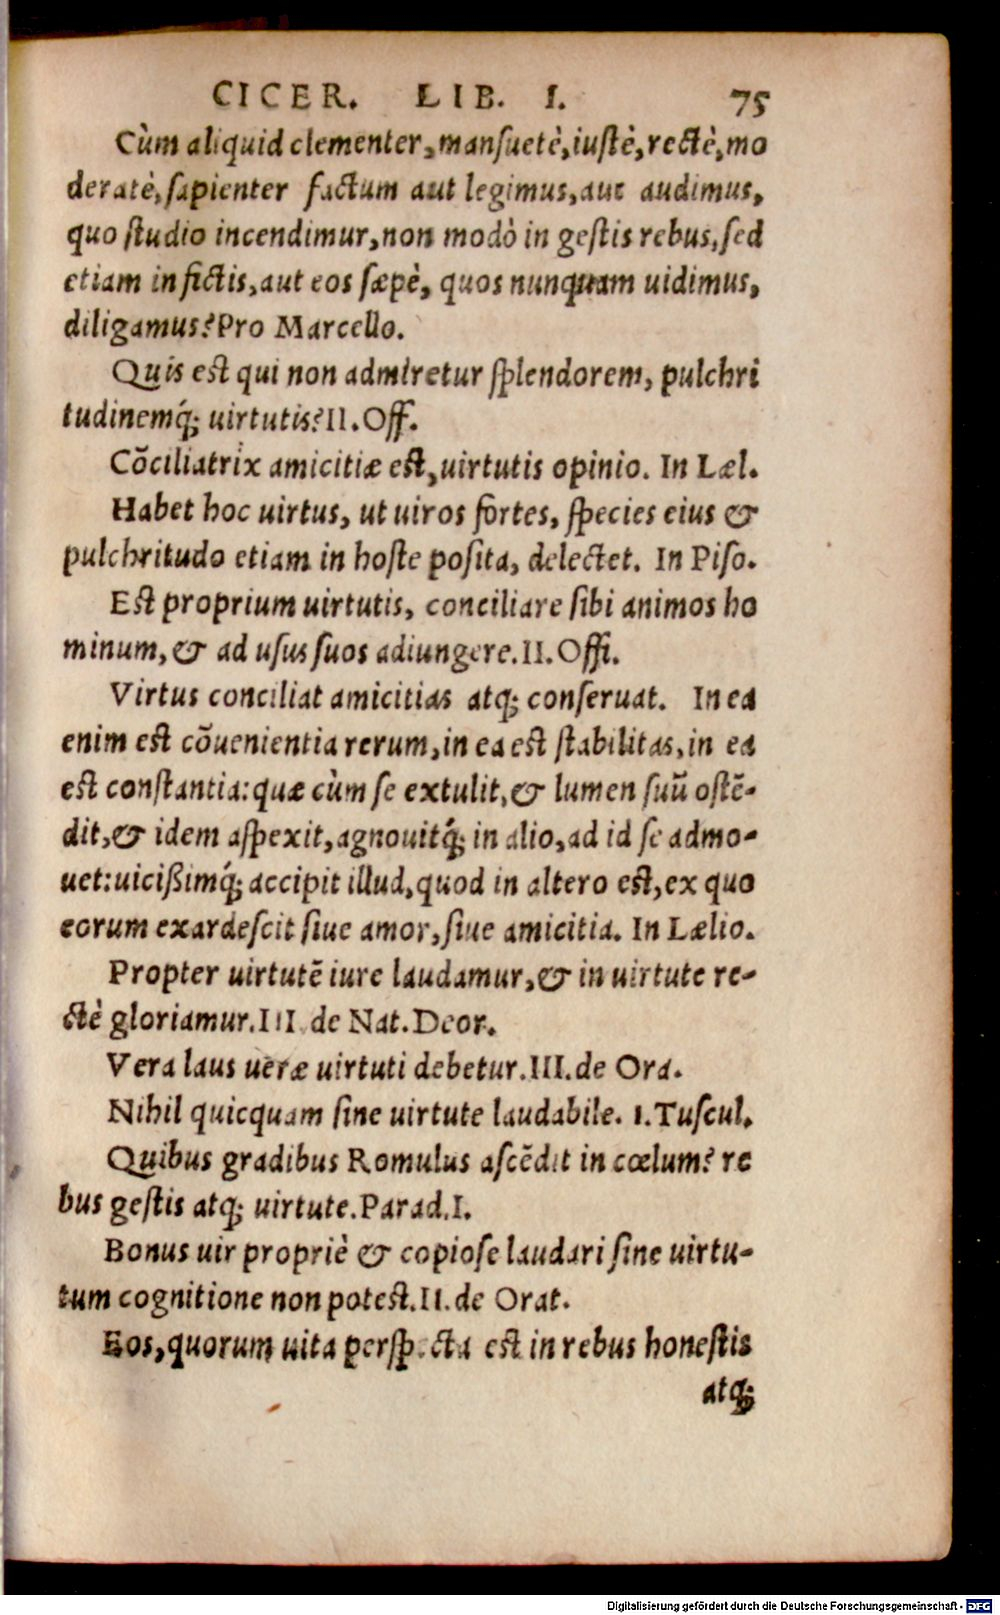 CICER. LIB. I. 75
Cùm aliquid clementer, mansuetè, iustè, rectè, mo
deratè, sapienter factum aut legimus, aut audimus,
quo studio incendimur, non modò in gestis rebus, sed
etiam in fictis, aut eos sæpè, quos nunquam uidimus,
diligamus? Pro Marcello.
Quis est qui non admiretur splendorem, pulchri
tudinemq́; uirtutis? II. Off.
Cōciliatrix amicitiæ est, uirtutis opinio. In Læl.
Habet hoc uirtus, ut uiros fortes, species eius &
pulchritudo etiam in hoste posita, delectet. In Piso.
Est proprium uirtutis, conciliare sibi animos ho
minum, & ad usus suos adiungere. II. Offi.
Virtus conciliat amicitias atq; conseruat. In ea
enim est cōuenientia rerum, in ea est stabilitas, in ea
est constantia: quæ cùm se extulit, & lumen suū ostē-
dit, & idem aspexit, agnouitq́; in alio, ad id se admo-
uet: uicißimq́; accipit illud, quod in altero est, ex quo
eorum exardescit siue amor, siue amicitia. In Lælio.
Propter uirtutē iure laudamur, & in uirtute re-
ctè gloriamur. III. de Nat. Deor.
Vera laus ueræ uirtuti debetur. III. de Ora.
Nihil quicquam sine uirtute laudabile. 1. Tuscul.
Quibus gradibus Romulus ascēdit in cœlum? re
bus gestis atq; uirtute. Parad. I.
Bonus uir propriè & copiose laudari sine uirtu-
tum cognitione non potest. II. de Orat.
Eos, quorum uita perspecta est in rebus honestis
atq;
Digitalisierung gefördert durch die Deutsche Forschungsgemeinschaft - DFG